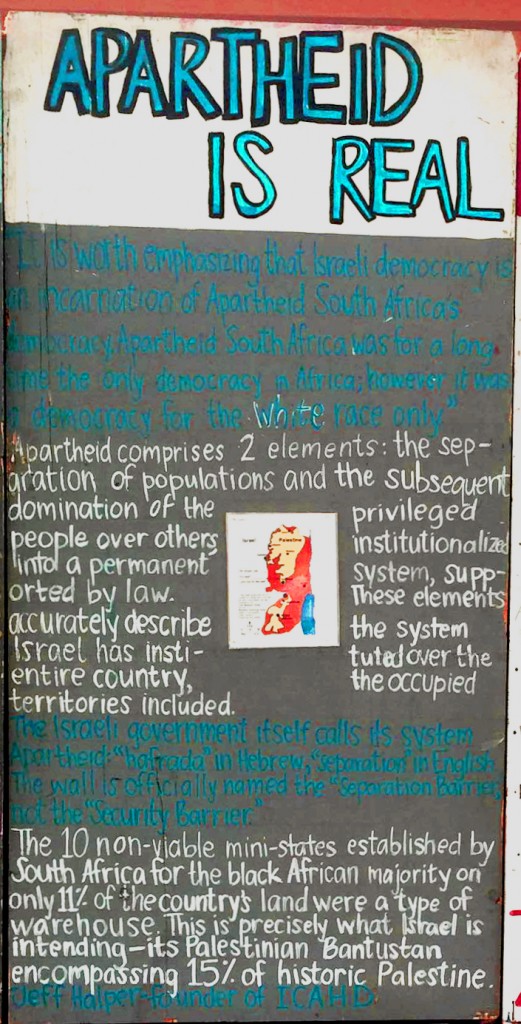 APARTHEID
IS REAL
"It is worth emphasizing that Israeli democracy is
an incarnation of Apartheid South Africa's
democracy. Apartheid South Africa was for a long
time the only democracy in Africa; however it was
a democracy for the white race only."
Apartheid comprises 2 elements: the sep-
aration of populations and the subsequent
domination of the privileged
people over others institutionalized
into a permanent system, supp-
orted by law. These elements
accurately describe the system
Israel has insti- tuted over the
entire country, the occupied
territories included.
The Israeli government itself calls its system
Apartheid: "hafrada" in Hebrew, "separation" in English.
The wall is officially named the "Separation Barrier,
not the "Security Barrier."
The 10 non-viable mini-states established by
South Africa for the black African majority on
only 11% of the country's land were a type of
warehouse. This is precisely what Israel is
intending-its Palestinian Bantustan
encompassing 15% of historic Palestine.
Jeff Halper-founder of ICAHD